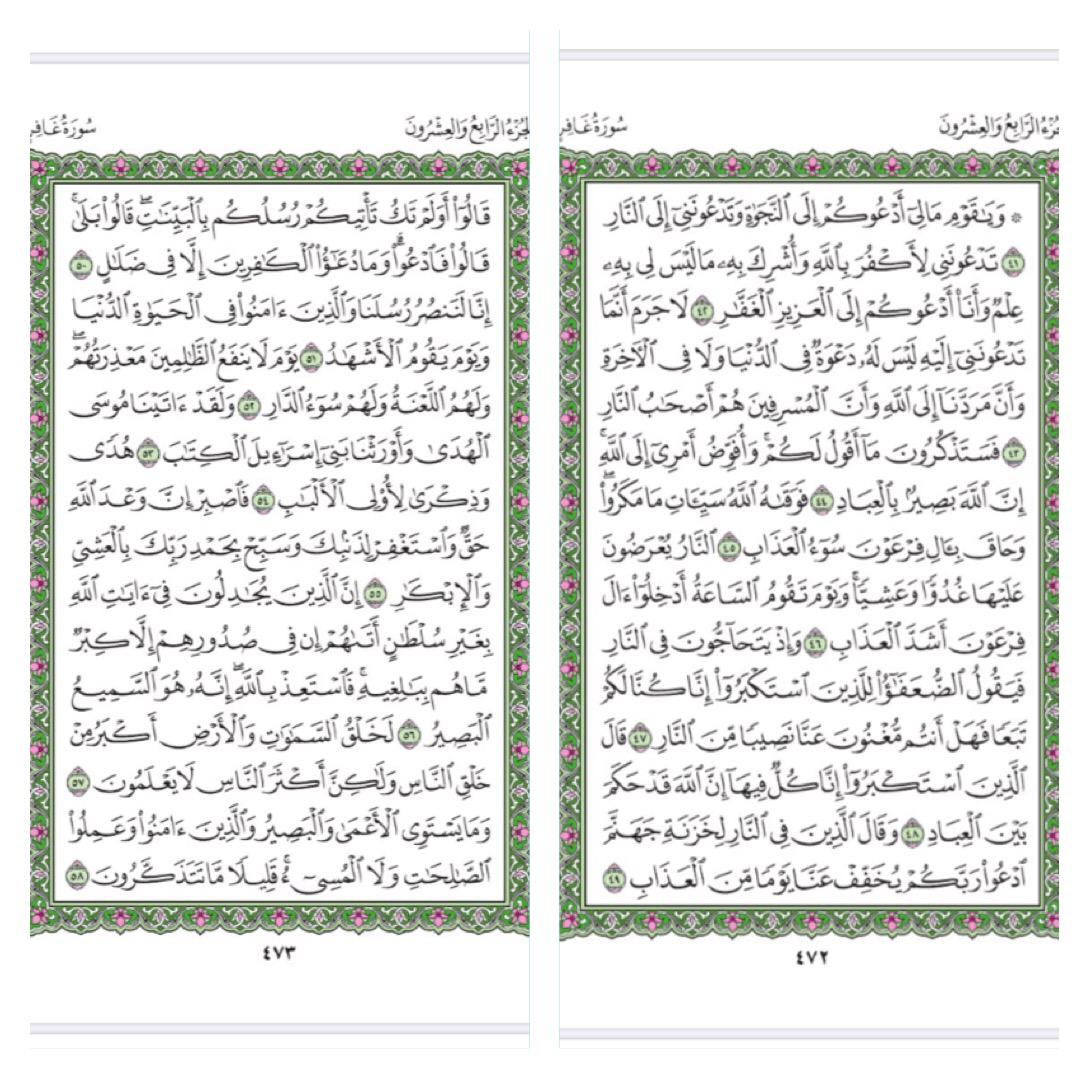 الجُزْءُ الرَّابِعُ وَالعِشْرُونَ سُورَةُ غَافِرٍ
۞ وَيَٰقَوْمِ مَالِيٓ أَدْعُوكُمْ إِلَى ٱلنَّجَوٰةِ وَتَدْعُونَنِيٓ إِلَى ٱلنَّارِ
٤١ تَدْعُونَنِي لِأَكْفُرَ بِٱللَّهِ وَأُشْرِكَ بِهِۦ مَا لَيْسَ لِي بِهِۦ
عِلْمٌ وَأَنَا۠ أَدْعُوكُمْ إِلَى ٱلْعَزِيزِ ٱلْغَفَّٰرِ ٤٢ لَا جَرَمَ أَنَّمَا
تَدْعُونَنِيٓ إِلَيْهِ لَيْسَ لَهُۥ دَعْوَةٌ فِي ٱلدُّنْيَا وَلَا فِي ٱلْأٓخِرَةِ
وَأَنَّ مَرَدَّنَآ إِلَى ٱللَّهِ وَأَنَّ ٱلْمُسْرِفِينَ هُمْ أَصْحَٰبُ ٱلنَّارِ
٤٣ فَسَتَذْكُرُونَ مَآ أَقُولُ لَكُمْۚ وَأُفَوِّضُ أَمْرِيٓ إِلَى ٱللَّهِۚ
إِنَّ ٱللَّهَ بَصِيرٌۢ بِٱلْعِبَادِ ٤٤ فَوَقَىٰهُ ٱللَّهُ سَيِّـَٔاتِ مَا مَكَرُواْۖ
وَحَاقَ بِـَٔالِ فِرْعَوْنَ سُوٓءُ ٱلْعَذَابِ ٤٥ ٱلنَّارُ يُعْرَضُونَ
عَلَيْهَا غُدُوًّا وَعَشِيًّاۚ وَيَوْمَ تَقُومُ ٱلسَّاعَةُ أَدْخِلُوٓاْ ءَالَ
فِرْعَوْنَ أَشَدَّ ٱلْعَذَابِ ٤٦ وَإِذْ يَتَحَآجُّونَ فِي ٱلنَّارِ
فَيَقُولُ ٱلضُّعَفَٰٓؤُاْ لِلَّذِينَ ٱسْتَكْبَرُوٓاْ إِنَّا كُنَّا لَكُمْ
تَبَعًا فَهَلْ أَنتُم مُّغْنُونَ عَنَّا نَصِيبًا مِّنَ ٱلنَّارِ ٤٧ قَالَ
ٱلَّذِينَ ٱسْتَكْبَرُوٓاْ إِنَّا كُلٌّ فِيهَآ إِنَّ ٱللَّهَ قَدْ حَكَمَ
بَيْنَ ٱلْعِبَادِ ٤٨ وَقَالَ ٱلَّذِينَ فِي ٱلنَّارِ لِخَزَنَةِ جَهَنَّمَ
ٱدْعُواْ رَبَّكُمْ يُخَفِّفْ عَنَّا يَوْمًا مِّنَ ٱلْعَذَابِ ٤٩
٤٧٢
الجُزْءُ الرَّابِعُ وَالعِشْرُونَ سُورَةُ غَافِرٍ
قَالُوٓاْ أَوَلَمْ تَكُ تَأْتِيكُمْ رُسُلُكُم بِٱلْبَيِّنَٰتِۖ قَالُواْ بَلَىٰۚ
قَالُواْ فَٱدْعُواْۗ وَمَا دُعَٰٓؤُاْ ٱلْكَٰفِرِينَ إِلَّا فِي ضَلَٰلٍ ٥٠
إِنَّا لَنَنصُرُ رُسُلَنَا وَٱلَّذِينَ ءَامَنُواْ فِي ٱلْحَيَوٰةِ ٱلدُّنْيَا
وَيَوْمَ يَقُومُ ٱلْأَشْهَٰدُ ٥١ يَوْمَ لَا يَنفَعُ ٱلظَّٰلِمِينَ مَعْذِرَتُهُمْۖ
وَلَهُمُ ٱللَّعْنَةُ وَلَهُمْ سُوٓءُ ٱلدَّارِ ٥٢ وَلَقَدْ ءَاتَيْنَا مُوسَى
ٱلْهُدَىٰ وَأَوْرَثْنَا بَنِيٓ إِسْرَٰٓءِيلَ ٱلْكِتَٰبَ ٥٣ هُدًى
وَذِكْرَىٰ لِأُوْلِي ٱلْأَلْبَٰبِ ٥٤ فَٱصْبِرْ إِنَّ وَعْدَ ٱللَّهِ
حَقٌّ وَٱسْتَغْفِرْ لِذَنۢبِكَ وَسَبِّحْ بِحَمْدِ رَبِّكَ بِٱلْعَشِيِّ
وَٱلْإِبْكَٰرِ ٥٥ إِنَّ ٱلَّذِينَ يُجَٰدِلُونَ فِيٓ ءَايَٰتِ ٱللَّهِ
بِغَيْرِ سُلْطَٰنٍ أَتَىٰهُمْ إِن فِي صُدُورِهِمْ إِلَّا كِبْرٌ
مَّا هُم بِبَٰلِغِيهِۚ فَٱسْتَعِذْ بِٱللَّهِۖ إِنَّهُۥ هُوَ ٱلسَّمِيعُ
ٱلْبَصِيرُ ٥٦ لَخَلْقُ ٱلسَّمَٰوَٰتِ وَٱلْأَرْضِ أَكْبَرُ مِنْ
خَلْقِ ٱلنَّاسِ وَلَٰكِنَّ أَكْثَرَ ٱلنَّاسِ لَا يَعْلَمُونَ ٥٧
وَمَا يَسْتَوِي ٱلْأَعْمَىٰ وَٱلْبَصِيرُ وَٱلَّذِينَ ءَامَنُواْ وَعَمِلُواْ
ٱلصَّٰلِحَٰتِ وَلَا ٱلْمُسِيٓءُۚ قَلِيلًا مَّا تَتَذَكَّرُونَ ٥٨
٤٧٣